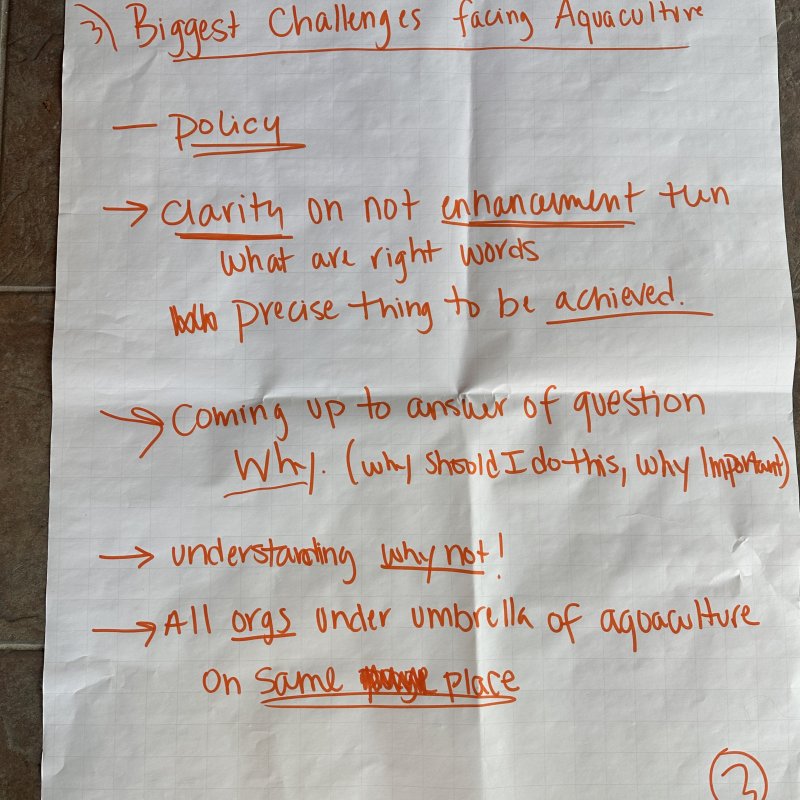 3) Biggest Challenges facing Aquaculture
— policy
→ Clarity on not enhancement
What are right words
precise thing to be achieved.
→ Coming up to answer of question
Why. (why should I do this, why Important)
→ understanding why not!
→ All orgs under umbrella of aquaculture
on same place
3